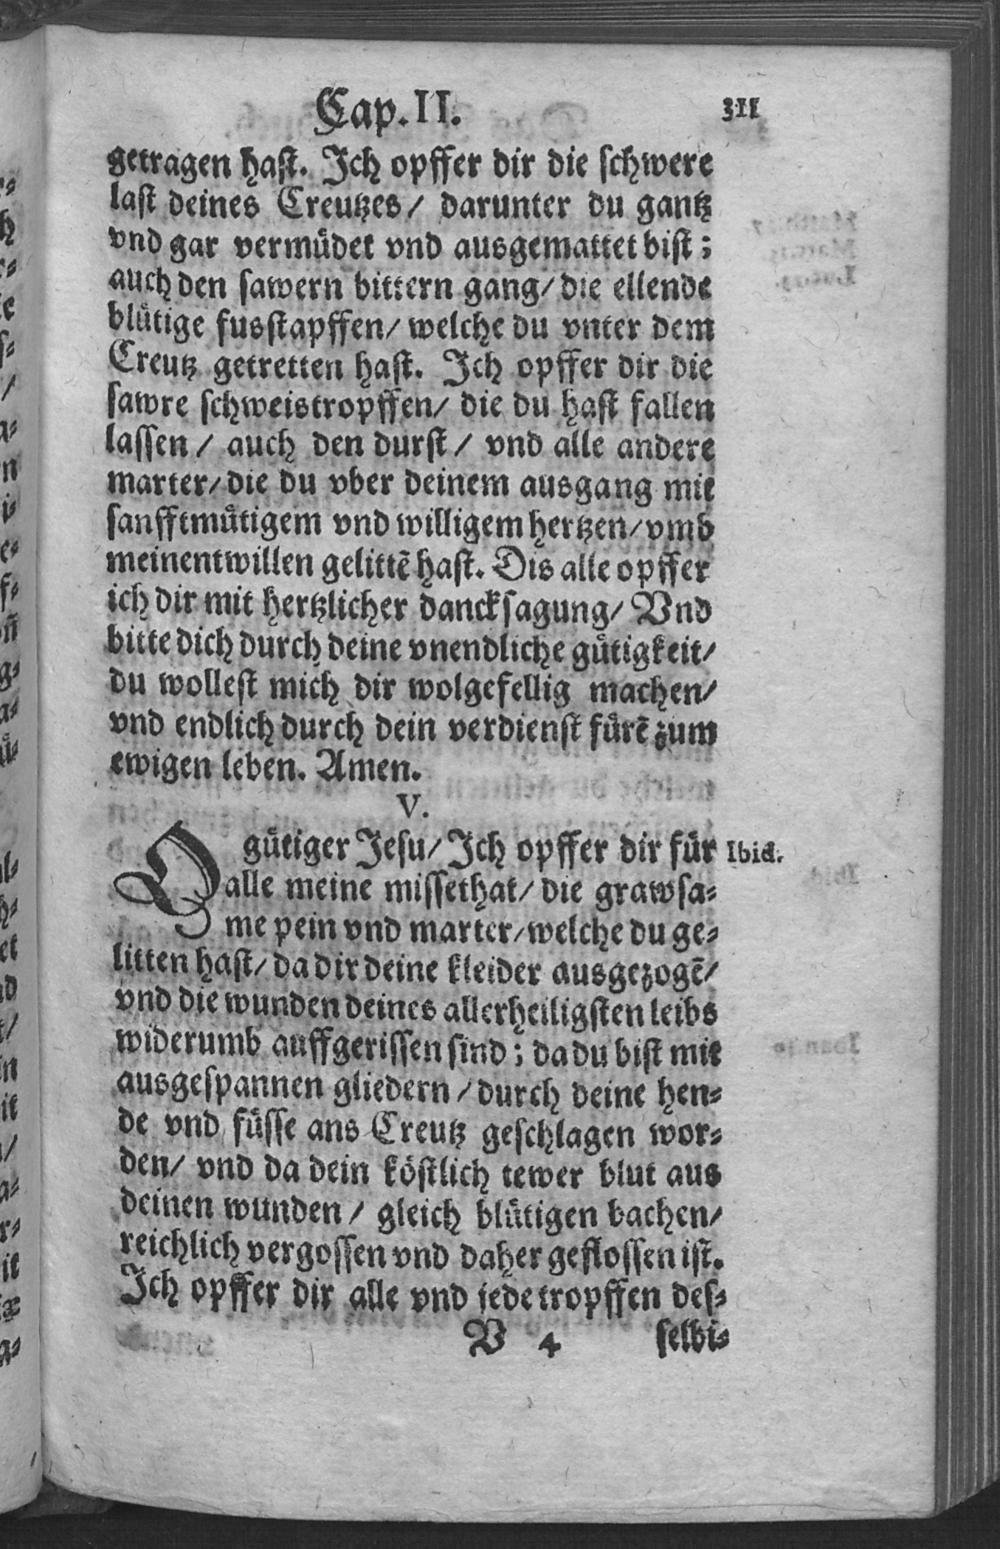 Cap. II. 311
getragen hast. Ich opffer dir die schwere
last deines Creutzes / darunter du gantz
vnd gar vermüdet vnd ausgemattet bist ;
auch den sawern bittern gang / die ellende
blütige fusstapffen / welche du vnter dem
Creutz getretten hast. Ich opffer dir die
sawre schweistropffen / die du hast fallen
lassen / auch den durst / vnd alle andere
marter / die du vber deinem ausgang mit
sanfftmütigem vnd willigem hertzen / vmb
meinentwillen gelittẽ hast. Dis alle opffer
ich dir mit hertzlicher dancksagung / Vnd
bitte dich durch deine vnendliche gütigkeit /
du wollest mich dir wolgefellig machen /
vnd endlich durch dein verdienst fürẽ zum
ewigen leben. Amen.
V.
O gütiger Jesu / Ich opffer dir für Ibid.
alle meine missethat / die grawsa-
me pein vnd marter / welche du ge-
litten hast / da dir deine kleider ausgezogẽ /
vnd die wunden deines allerheiligsten leibs
widerumb auffgerissen sind ; da du bist mit
ausgespannen gliedern / durch deine hen-
de vnd füsse ans Creutz geschlagen wor-
den / vnd da dein köstlich tewer blut aus
deinen wunden / gleich blütigen bachen /
reichlich vergossen vnd daher geflossen ist.
Ich opffer dir alle vnd jede tropffen des-
V 4 selbi-